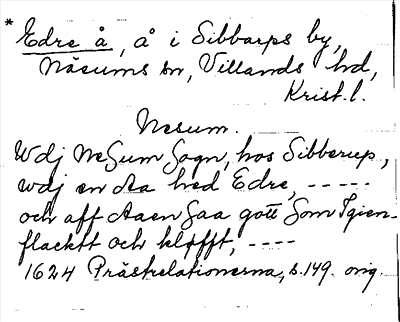 * Edre å, å i Sibbarps by,
Näsums sn, Villands hd,
Krist.l.
Nesum.
Wdj NeSum Sogn, hos Sibberup,
wdj en Aa hed Edre, -----
och aff Aaen Saa gott Som Igien-
flacktt och kløfft, ----
1624 Prästrelationerna, s. 149. orig.